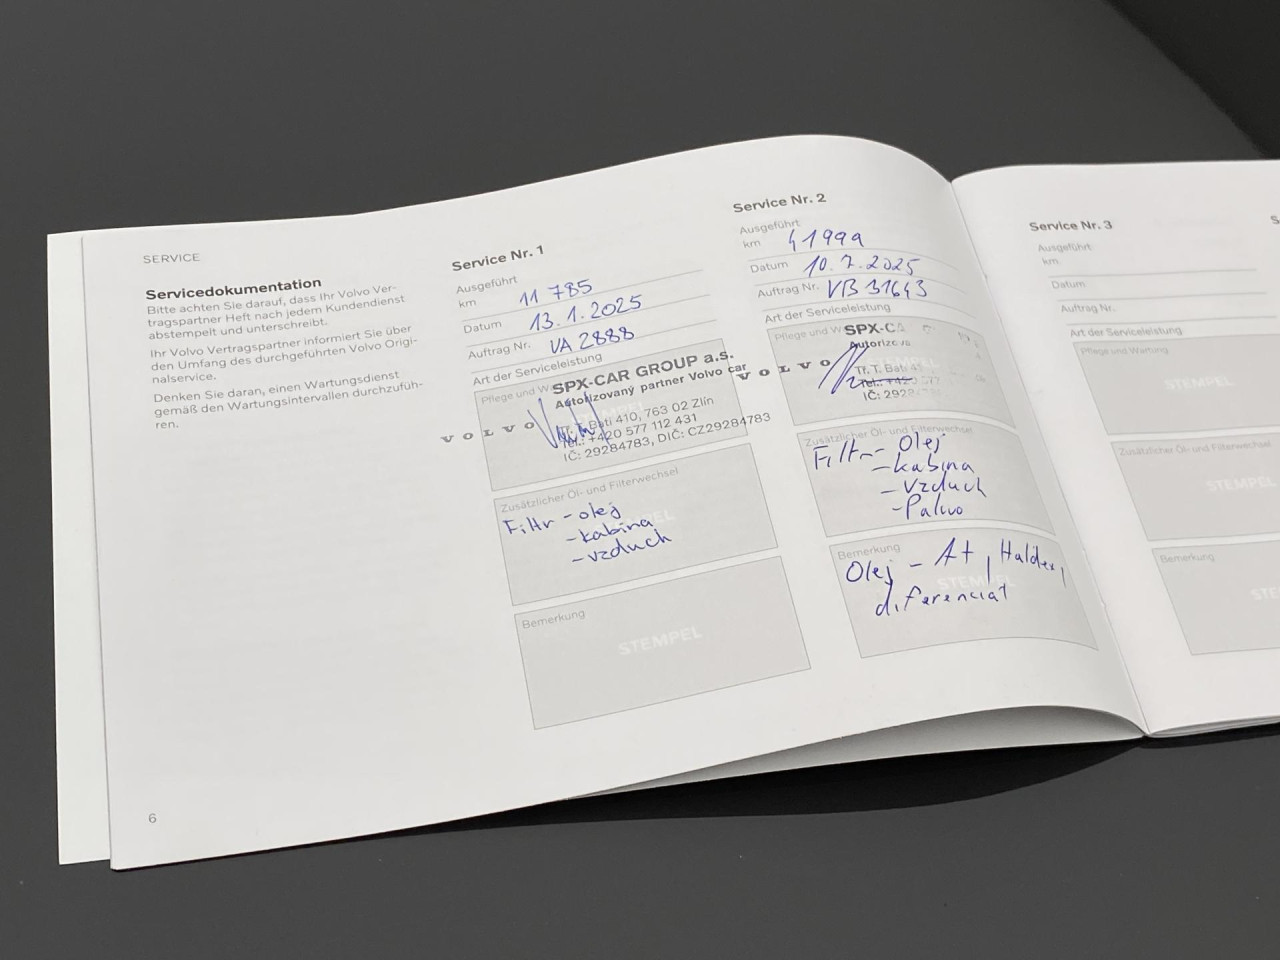 SERVICE
Servicedokumentation
Bitte achten Sie darauf, dass Ihr Volvo Ver-
tragspartner Heft nach jedem Kundendienst
abstempelt und unterschreibt.
Ihr Volvo Vertragspartner informiert Sie über
den Umfang des durchgeführten Volvo Origi-
nalservice.
Denken Sie daran, einen Wartungsdienst
gemäß den Wartungsintervallen durchzufüh-
ren.
6
Service Nr. 1
Ausgeführt
km 11 785
Datum 13.1.2025
Auftrag Nr. VA 2888
Art der Serviceleistung
Pflege und
SPX-CAR GROUP a.s.
Autorizovaný partner Volvo car
VOLVO
Tř. T. Bati 410, 763 02 Zlín
Tel.: +420 577 112 431
IČ: 29284783, DIČ: CZ29284783
Zusätzlicher Öl- und Filterwechsel
Filtr - olej
- kabina
- vzduch
Bemerkung
STEMPEL
Service Nr. 2
Ausgeführt
km 41999
Datum 10.7.2025
Auftrag Nr. VB 31643
Art der Serviceleistung
Pflege und
SPX-CA
VOLVO
Tř. T. Bati 41
Tel.: +420 577
IČ: 2928
Zusätzlicher Öl- und Filterwechsel
Filtr - Olej
- kabina
- Vzduch
- Palivo
Bemerkung
STEMPEL
Olej - At, Haldex,
diferenciál
Service Nr. 3
Ausgeführt
km
Datum
Auftrag Nr.
Art der Serviceleistung
Pflege und Wartung
STEMPEL
Zusätzlicher Öl- und Filterwechsel
STEMPEL
Bemerkung
STE
S